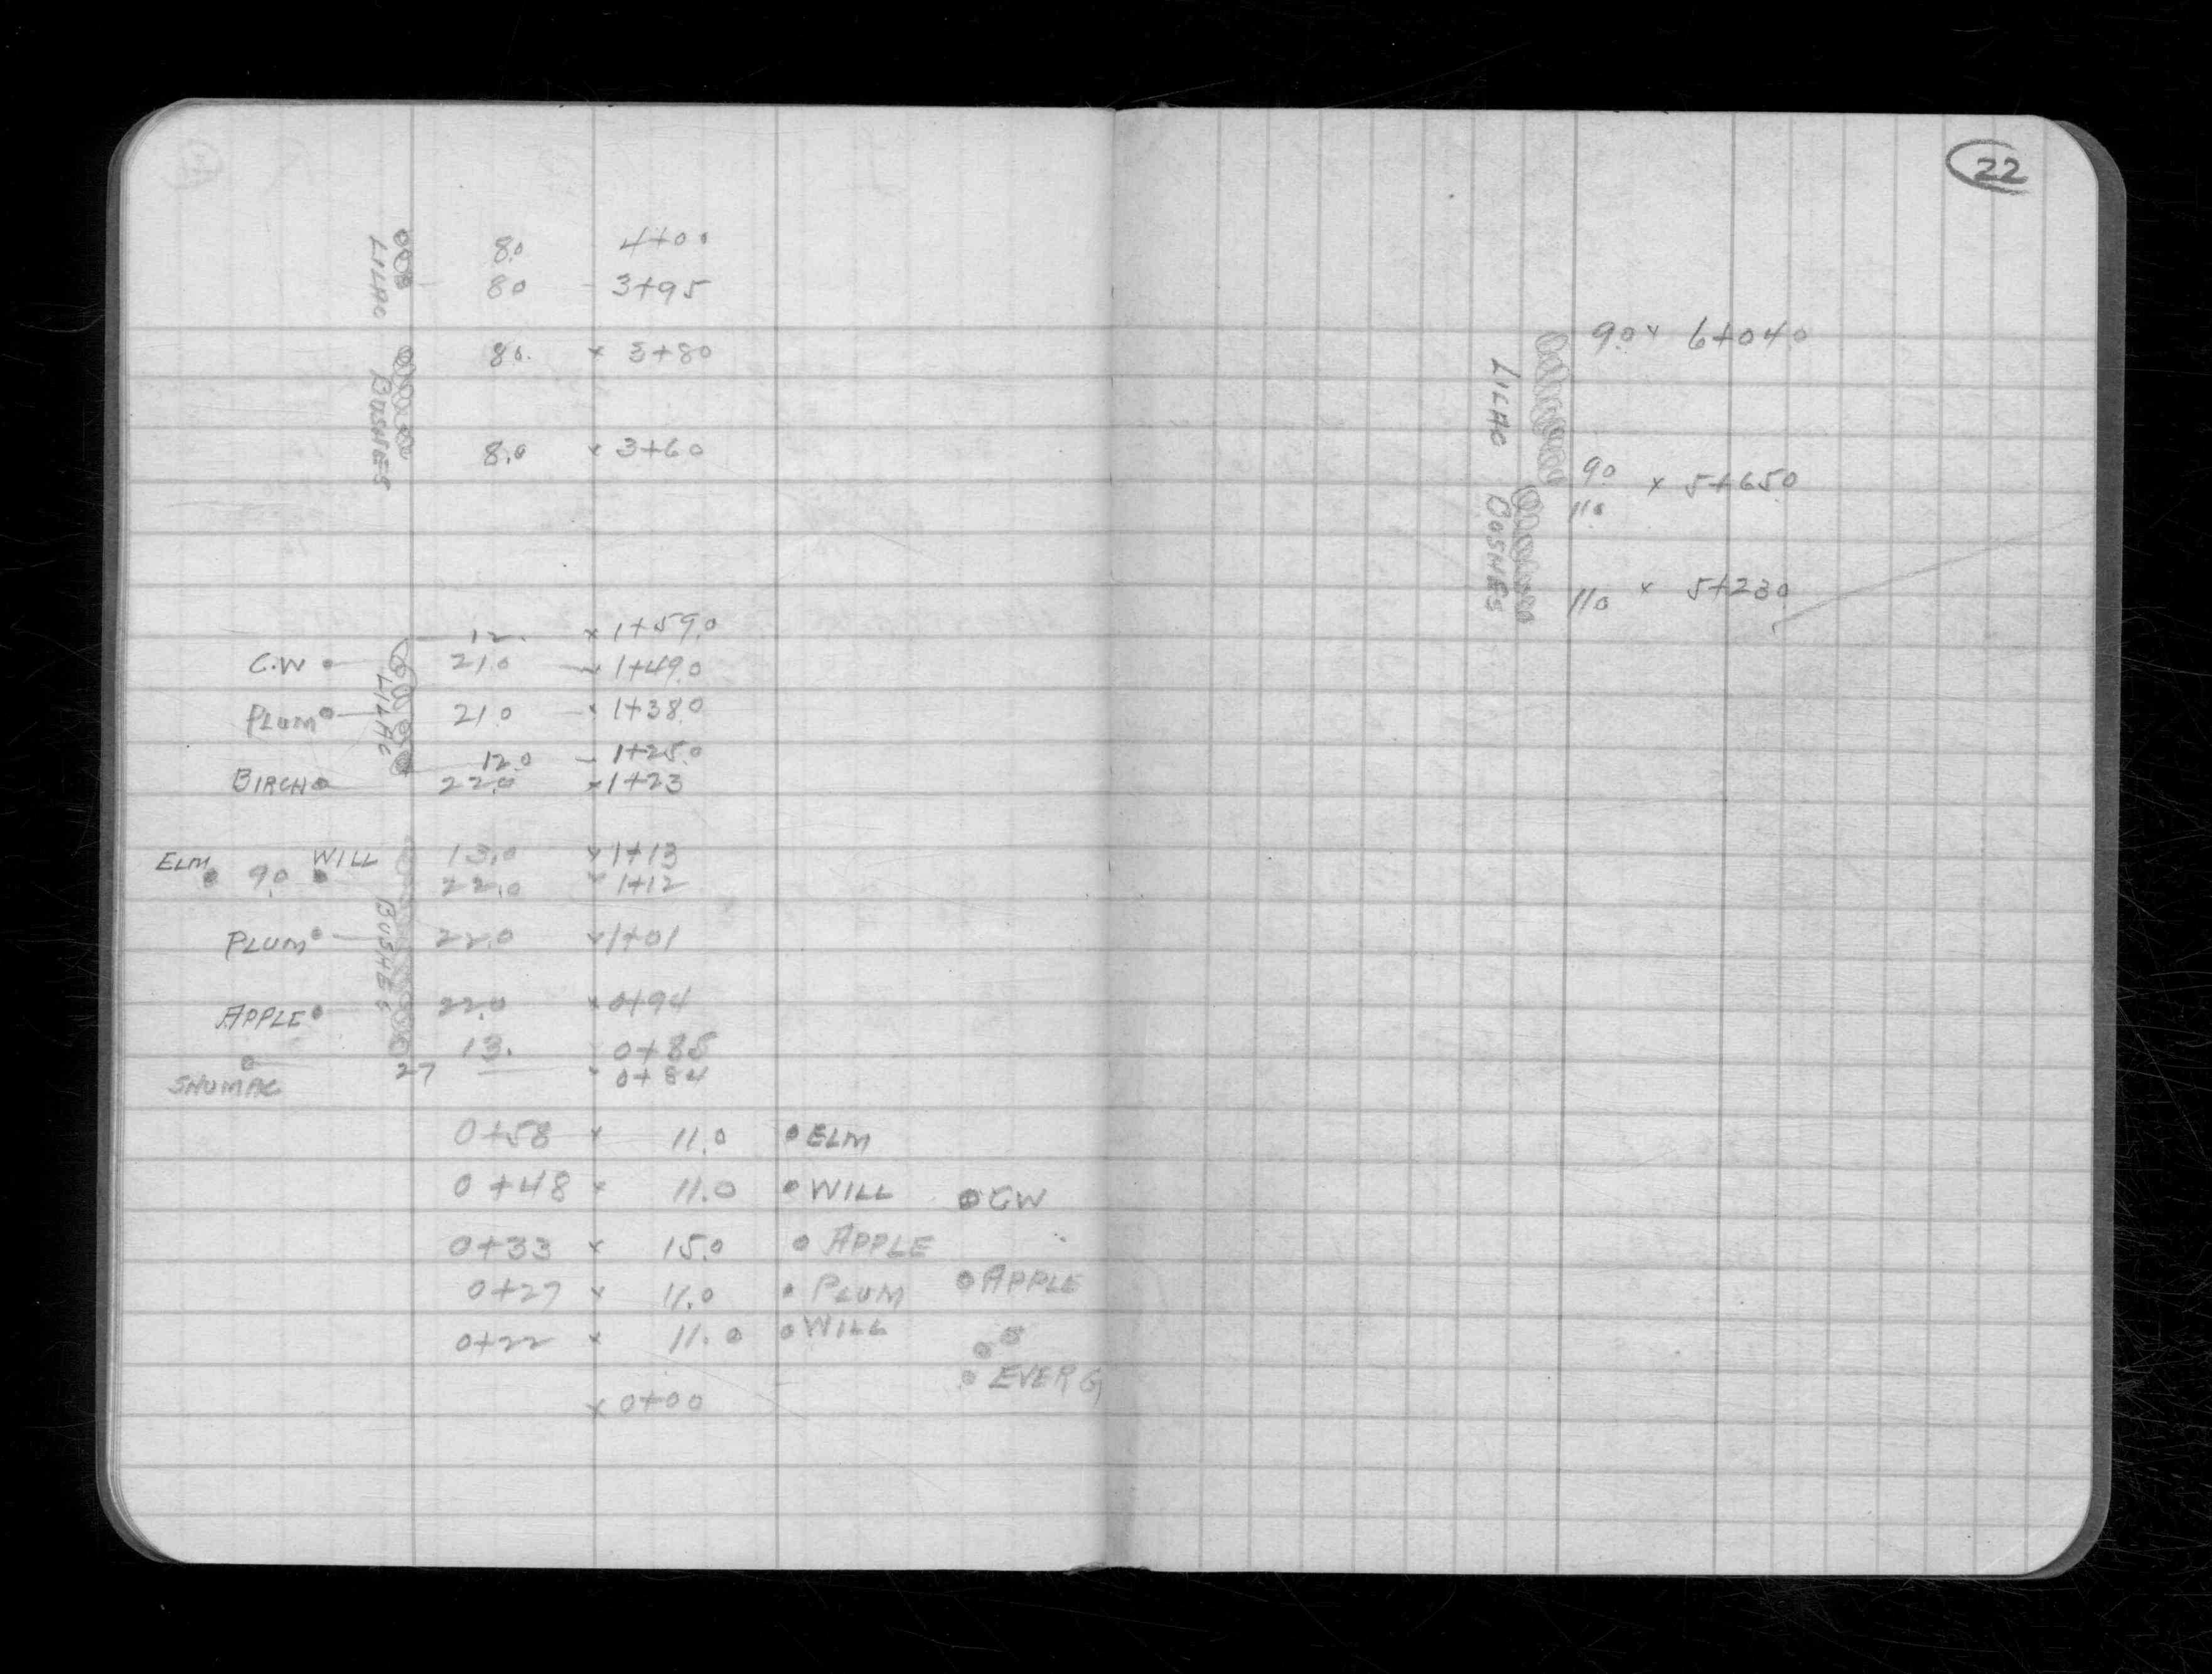 8.0 4+00
80 3+95
LILAC BUSHES
80. x 3+80
8.0 x 3+60
12. x 1+59.0
C.W 21.0 1+49.0
LILAC
PLUM 21.0 x 1+38.0
12.0 1+25.0
BIRCH 22.0 x 1+23
ELM 9.0 WILL 13.0 x 1+13
22.0 x 1+12
BUSHES
PLUM 22.0 x 1+01
APPLE 22.0 x 0+94
13. 0+85
27 0+84
SHUMAC
0+58 x 11.0 ELM
0+48 x 11.0 WILL CW
0+33 x 15.0 APPLE
0+27 x 11.0 PLUM APPLE
0+22 x 11.0 WILL
EVERG
x 0+00
22
9.0 x 6+04.0
LILAC BUSHES
9.0 x 5+65.0
11.0
11.0 x 5+23.0